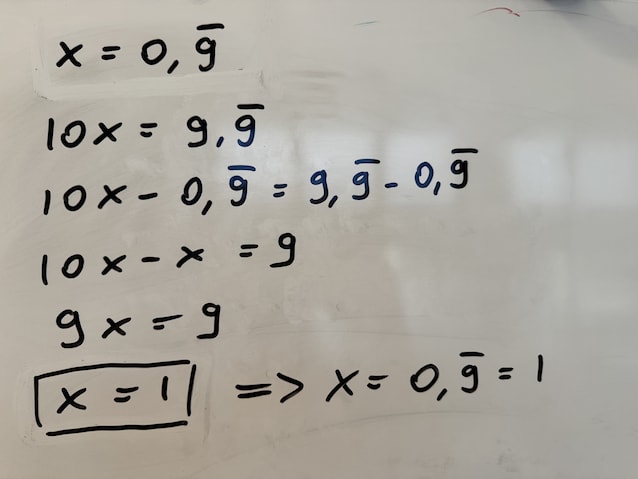 x = 0,9̅
10x = 9,9̅
10x - 0,9̅ = 9,9̅ - 0,9̅
10x - x = 9
9x = 9
x = 1 => x = 0,9̅ = 1